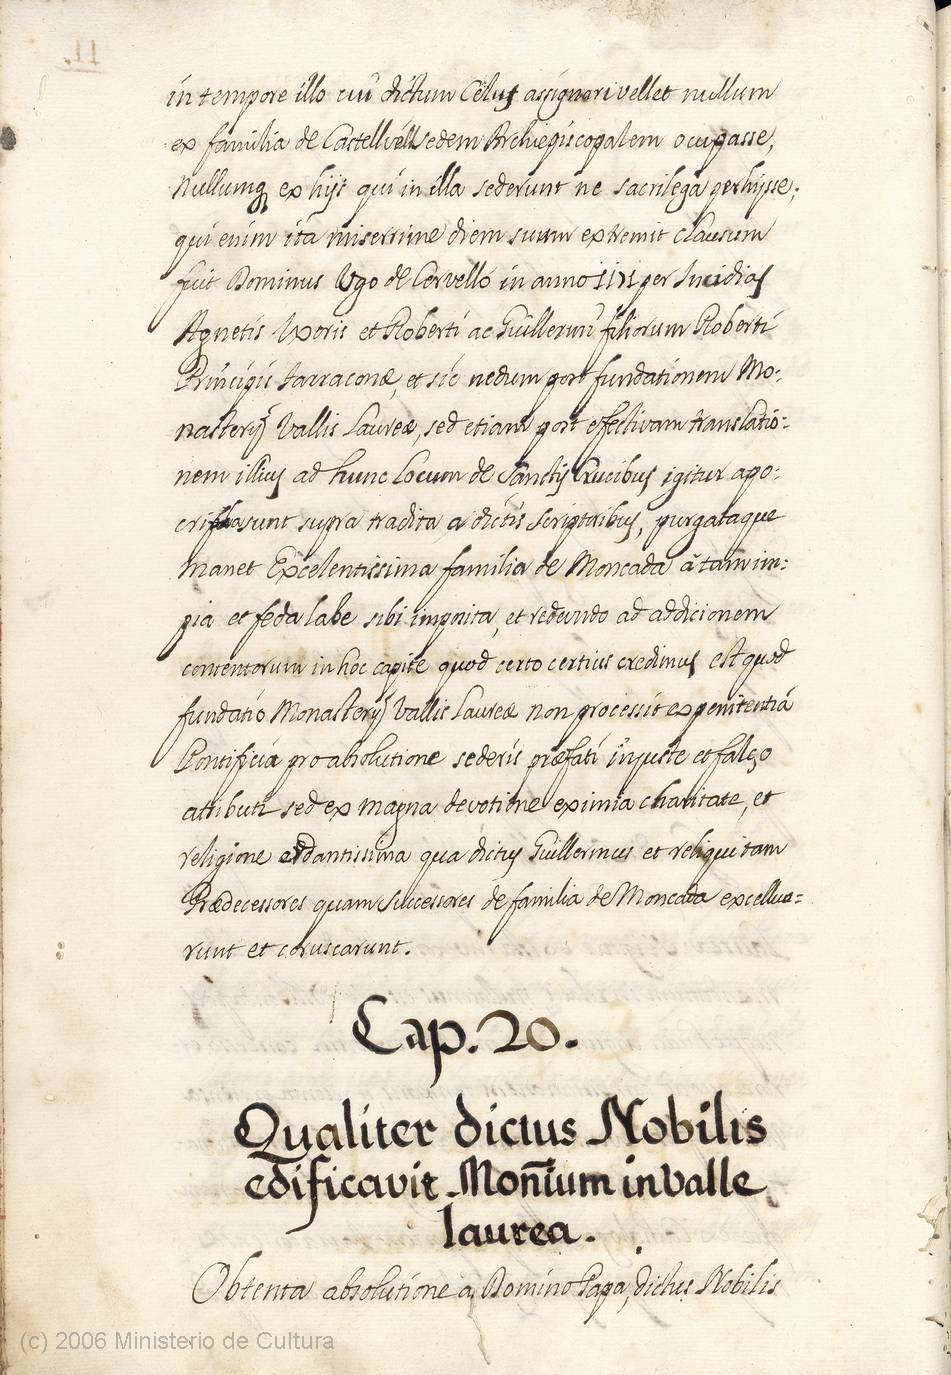 in tempore illo cuũ dictum Celus assignari vellet nullum
ex familia de Castellvell sedem Archiepiscopalem ocupasse,
Nullumq ex hijs qui in illa sederunt ne sacrilega perhijsse;
qui enim ita miserrime diem suum extremit clausum
fuit Dominus Ugo de Cervelló in anno 1171 per Incidias
Agnetis Uxoris et Roberti ac Guillermi filiorum Roberti
Principis Tarraconæ, et sic nedum post fundationem Mo:
nasterij Vallis Laureæ, sed etiam post efectivam translatio:
nem illius ad hunc Locum de Sanctis Crucibus igitur apo:
criphasunt supra tradita a dictis Scriptoribus, purgataque
manet Excelentissima familia de Moncada á tam im:
pia et feda labe sibi imposita, et redeundo ad addicionem
contentorum in hoc capite quod certo certius credimus est quod
fundatio Monasterij Vallis Laureæ non processit ex penitentiá
Pontificia pro absolutione sederis præfati injuste et falço
attibuti sed ex magna devotione eximia charitate, et
religione ardantissima qua dictus Guillermus et reliqui tam
Prædecessores quam Successores de familia de Moncada excellue:
runt et coruscarunt.
Cap. 20.
Qualiter dictus Nobilis
edificavit Moñium in valle
laurea.
Obtenta absolutione a Domino Papa, dictus Nobilis
(c) 2006 Ministerio de Cultura